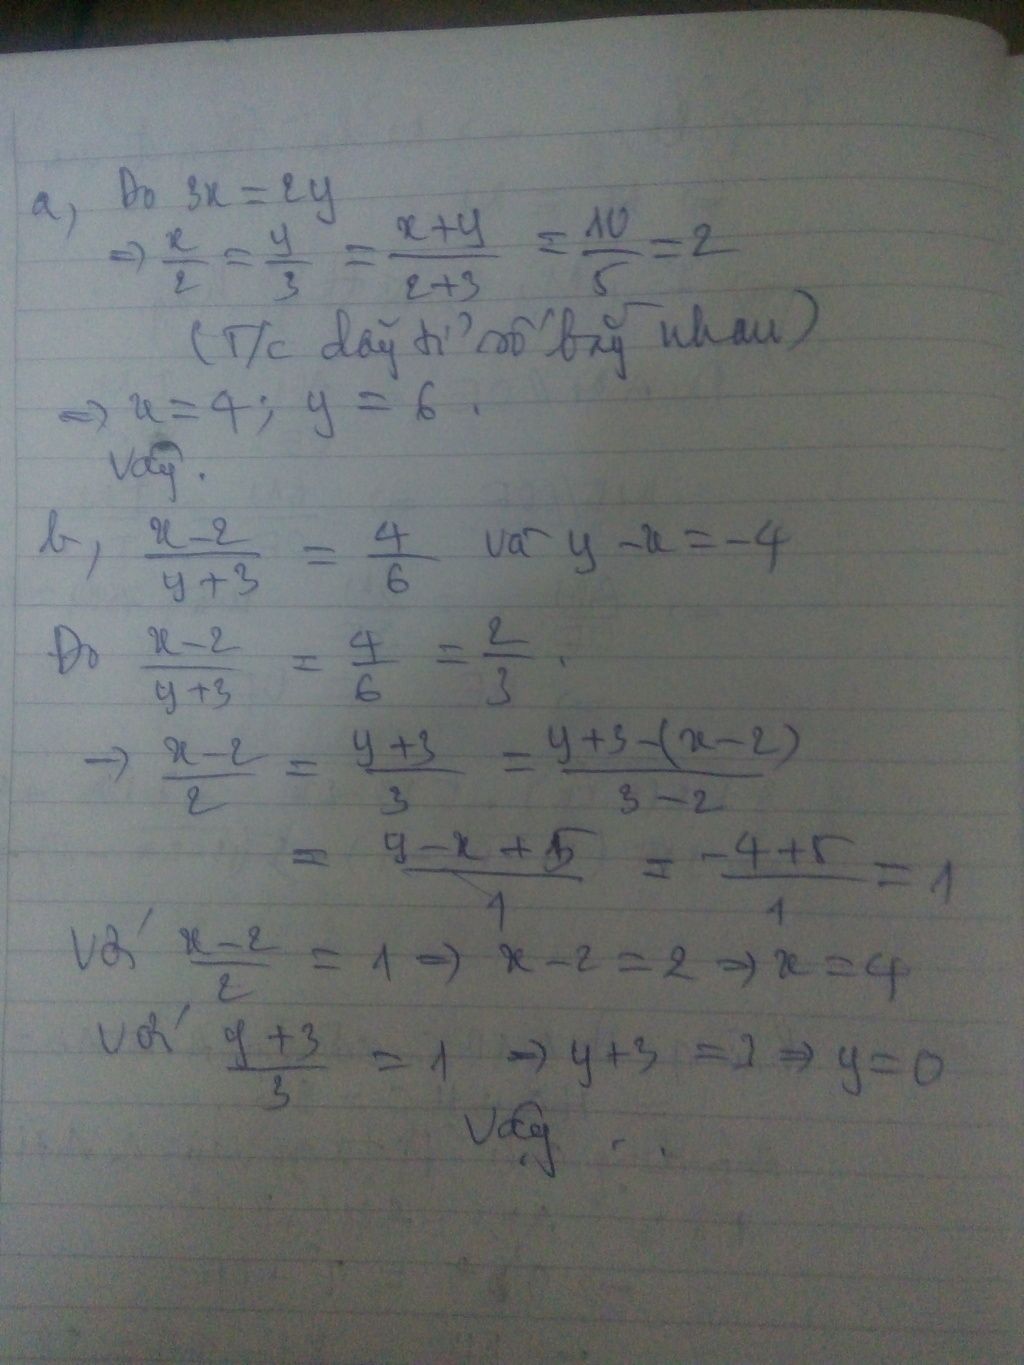 a, Do 3x = 2y
=> x/2 = y/3 = (x+y)/(2+3) = 10/5 = 2
(T/c dãy tỉ số bằng nhau)
=> x = 4; y = 6.
Vậy.
b, (x-2)/(y+3) = 4/6 và y - x = -4
Do (x-2)/(y+3) = 4/6 = 2/3.
=> (x-2)/2 = (y+3)/3 = (y+3-(x-2))/(3-2)
= (y-x+5)/1 = (-4+5)/1 = 1
Với (x-2)/2 = 1 => x-2 = 2 => x = 4
Với (y+3)/3 = 1 => y+3 = 3 => y = 0
Vậy ...